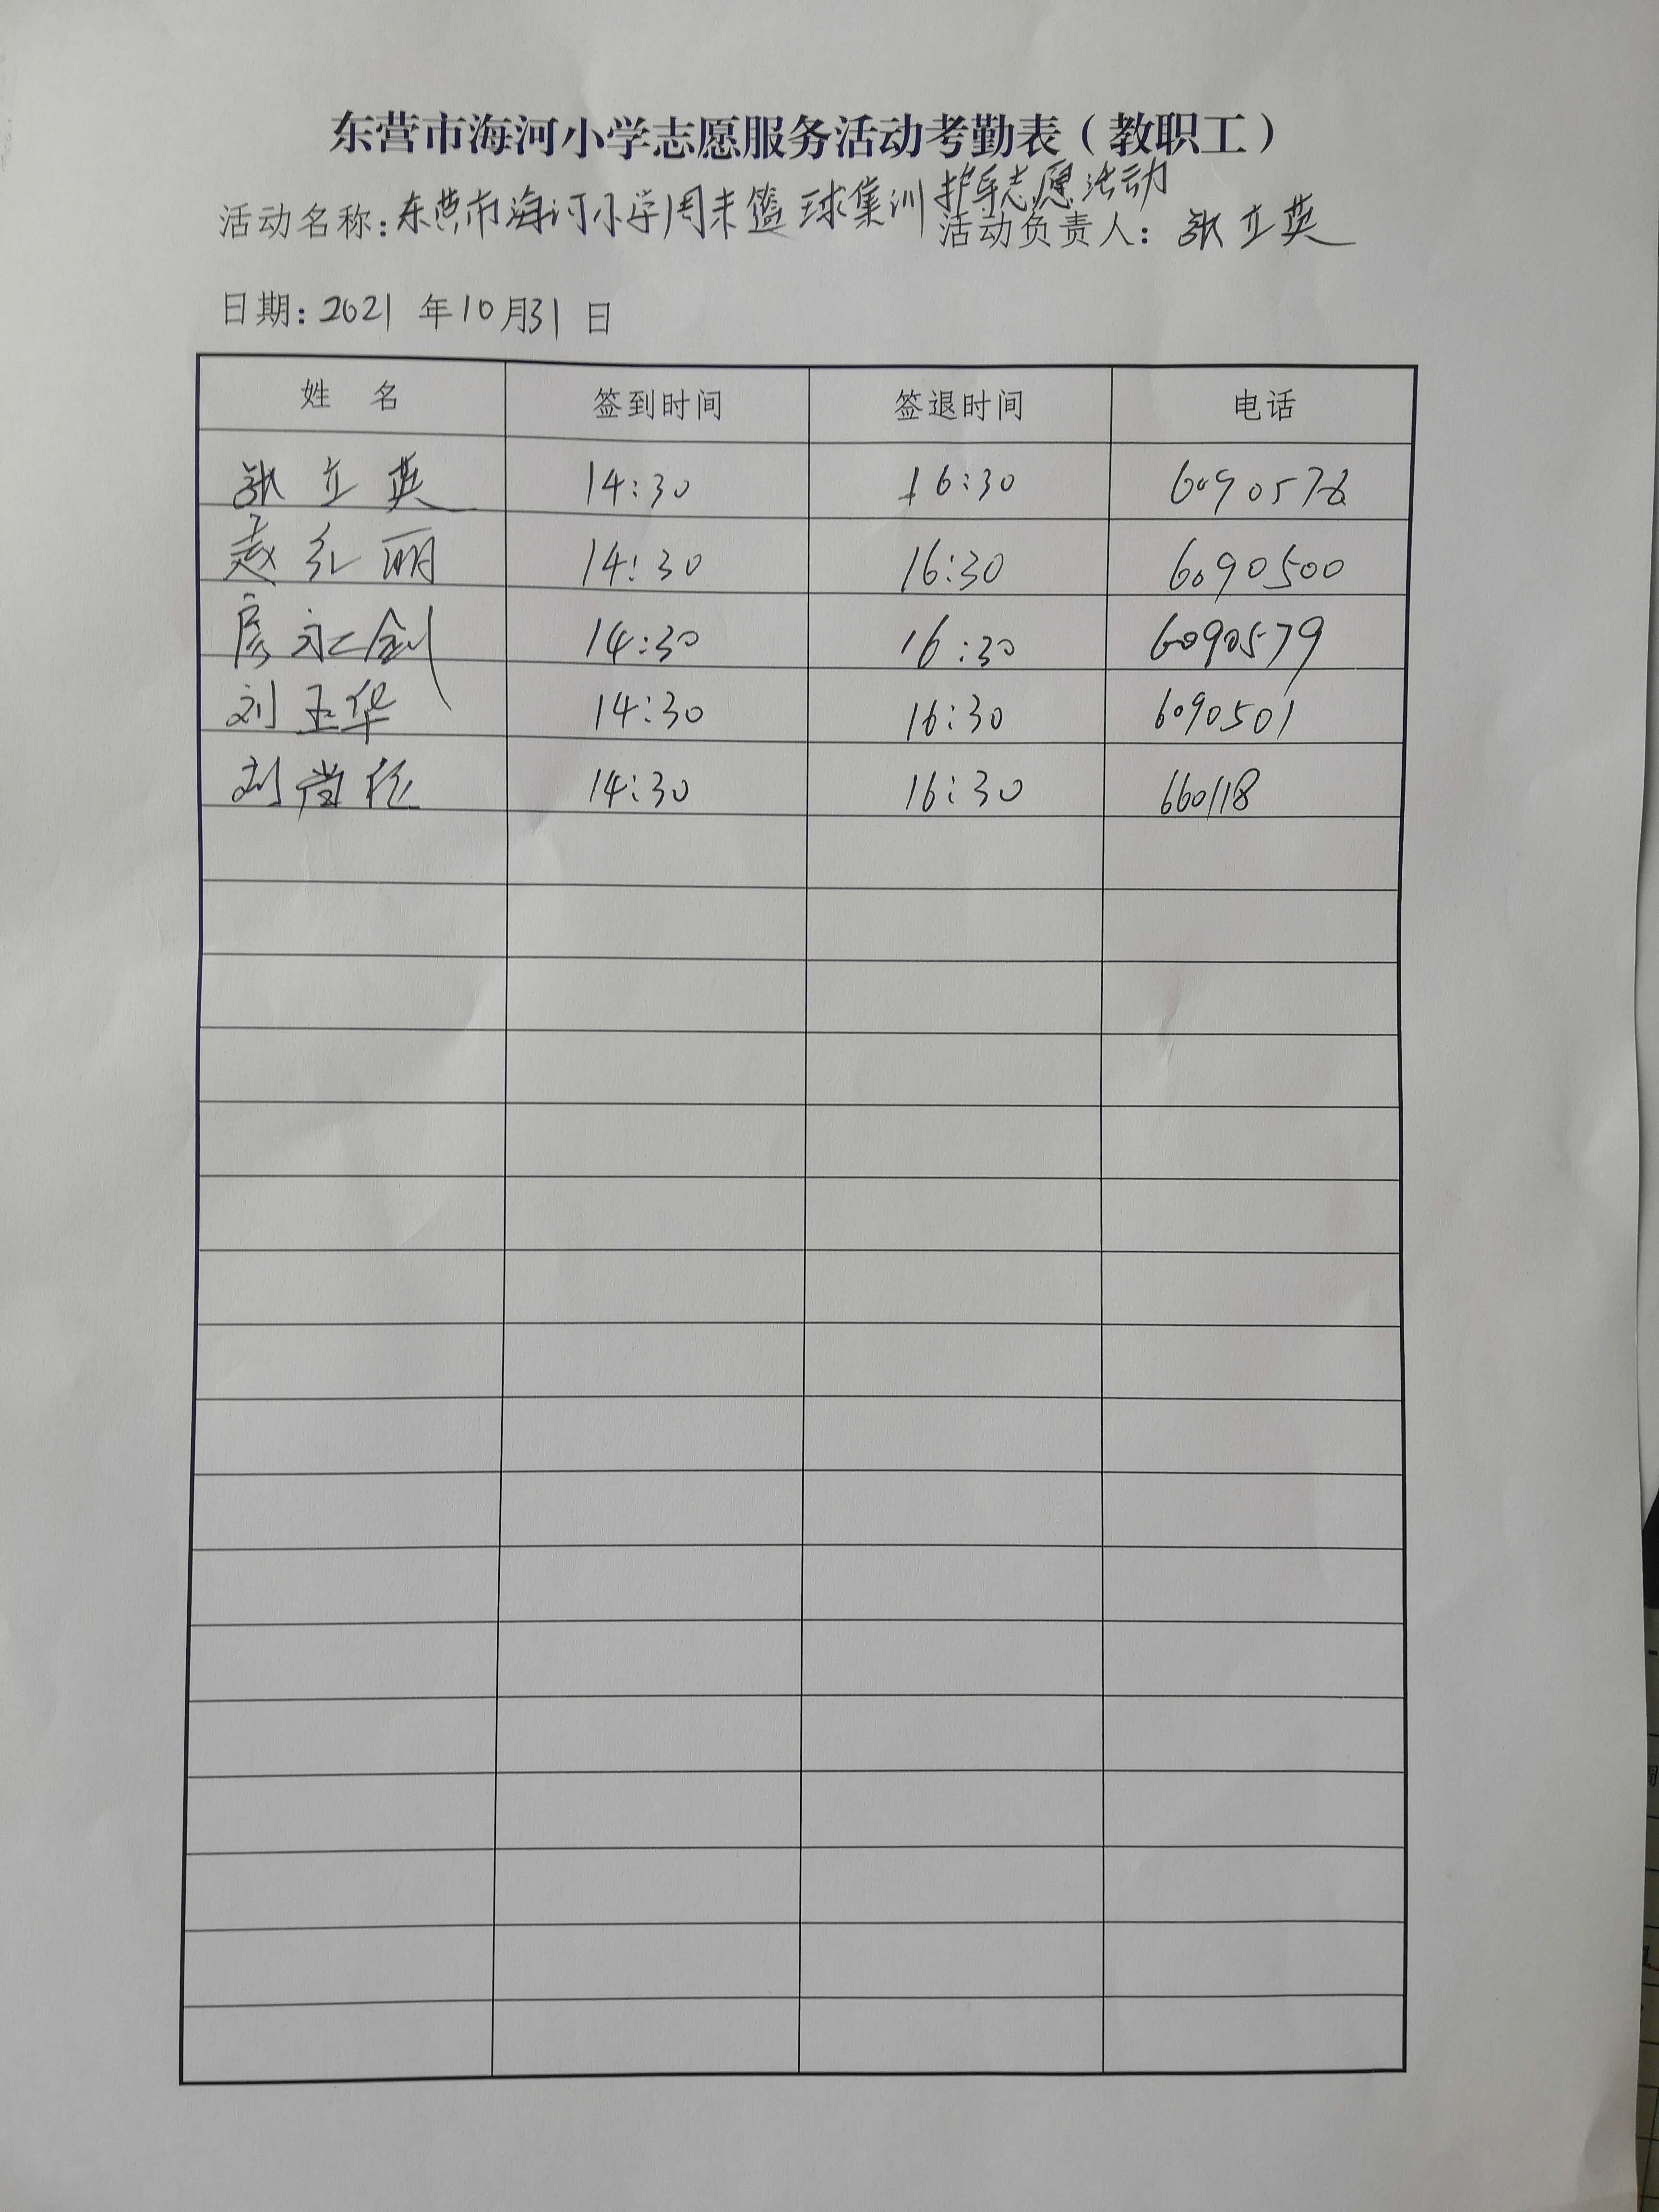 东营市海河小学志愿服务活动考勤表（教职工）
活动名称：东营市海河小学周末篮球集训护导志愿活动 活动负责人：张立英
日期：2021 年 10 月 31 日
姓 名 签到时间 签退时间 电话
张立英 14:30 16:30 6090578
赵红丽 14:30 16:30 6090500
房永剑 14:30 16:30 6090579
刘玉华 14:30 16:30 6090501
刘 14:30 16:30 660118